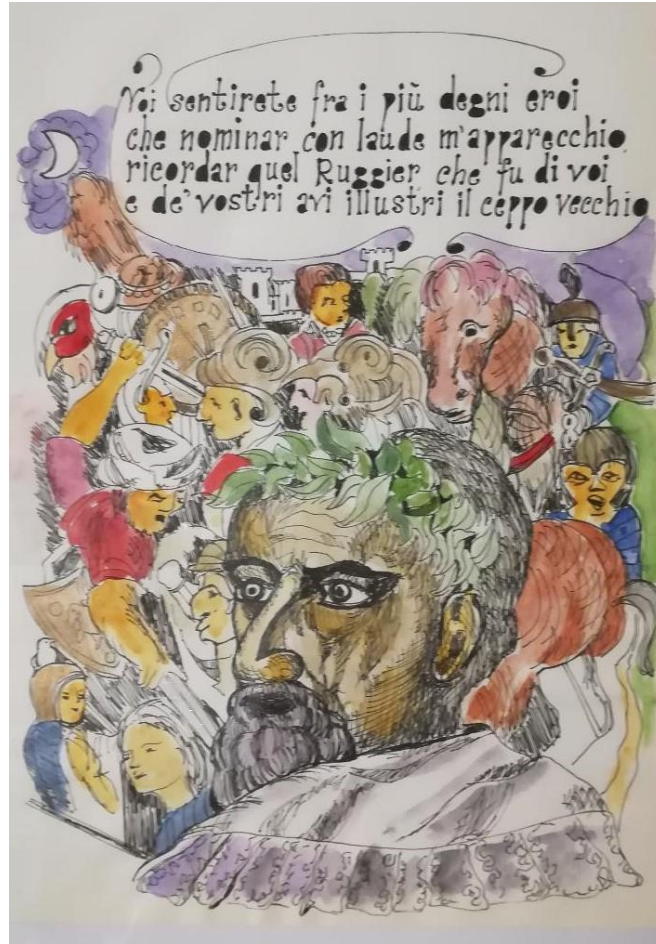 Voi sentirete fra i più degni eroi
che nominar con laude m'apparecchio,
ricordar quel Ruggier che fu di voi
e de' vostri avi illustri il ceppo vecchio